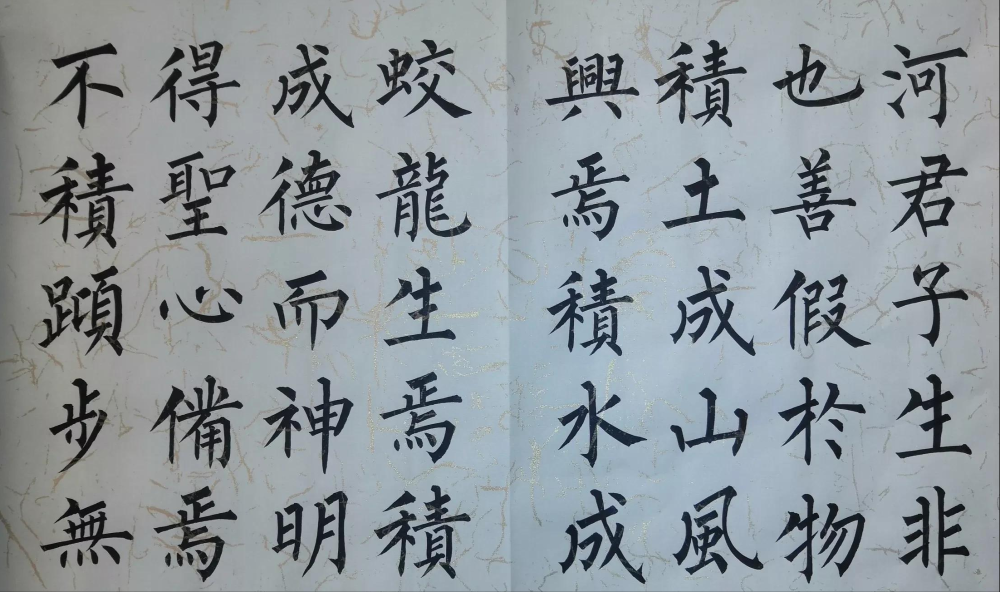 河君子生非
也善假於物
積土成山風
興焉積水成
蛟龍生焉積
成德而神明
得聖心備焉
不積蹞步無